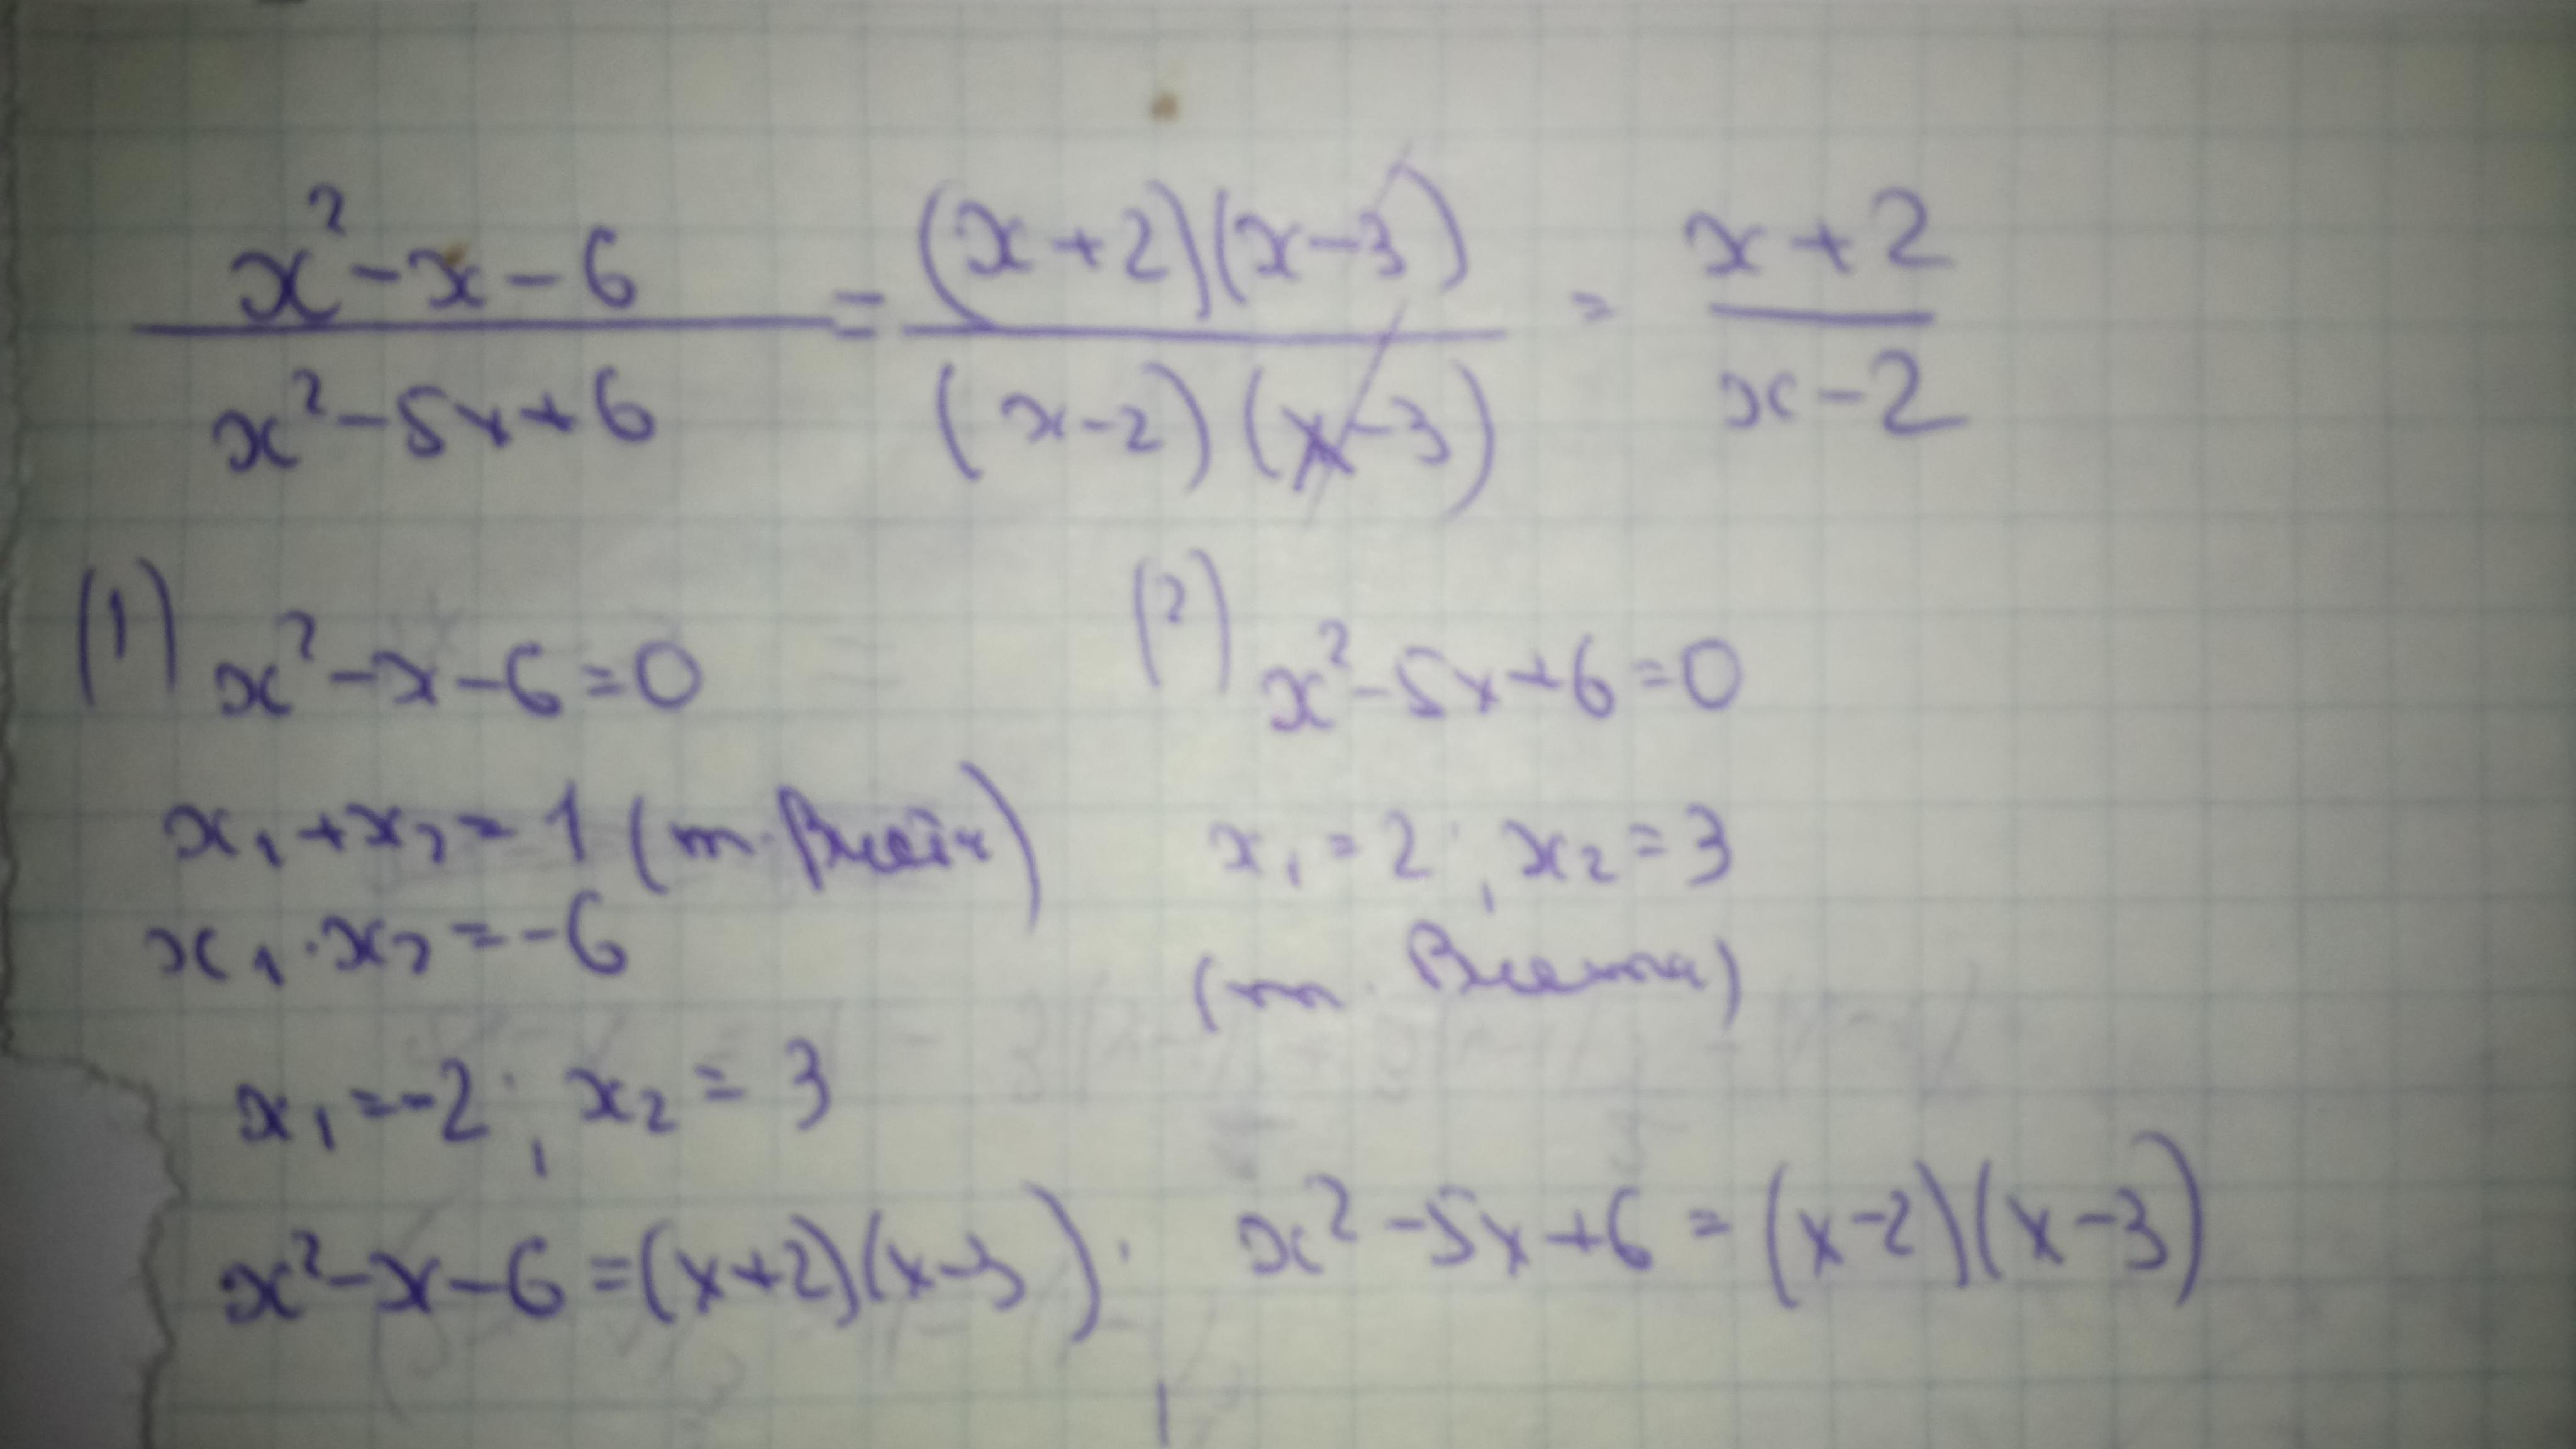 (x² - x - 6)/(x² - 5x + 6) = ((x+2)(x-3))/((x-2)(x-3)) = (x+2)/(x-2)
(1) x² - x - 6 = 0
x₁ + x₂ = 1 (т. Виета)
x₁ · x₂ = -6
x₁ = -2; x₂ = 3
x² - x - 6 = (x+2)(x-3).
(2) x² - 5x + 6 = 0
x₁ = 2; x₂ = 3
(т. Виета)
x² - 5x + 6 = (x-2)(x-3)